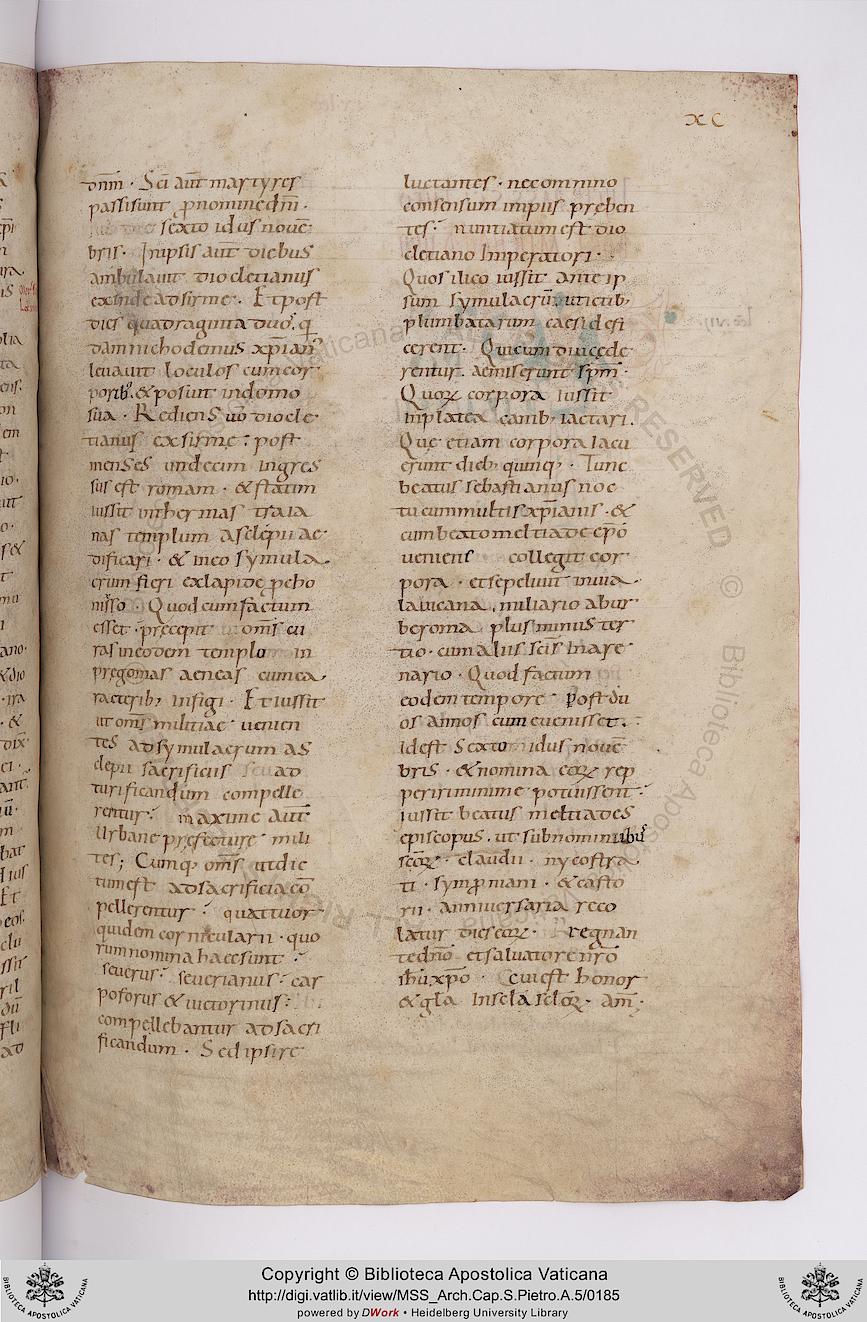 xc
dnm̅ · Sc̅i aut̅ martyres
passi sunt p̱ nomine dn̅i ·
sexto idus noue̅
bris · In ipsis aut̅ diebus
ambulauit diocletianus
exinde ad sirme · Et post
dies quadraginta duos · q̇
dam nichodemus xp̅ian̅
leuauit loculos cum cor
poribꝰ · & posuit in domo
sua · Rediens uo̅ diocle
tianus ex sirme · post
menses undecim ingres
sus est romam · & statim
iussit in thermas traia
nas templum asclepii ae
dificari · & in eo symula
crum fieri ex lapide p̱cho
nisso · Quod cum factum
esset · precepit om̅s cu
ras in eodem templo in
pregomas aeneas cum ca
racterib; infigi · Et iussit
ut om̅s militiae uenien
tes ad symulacrum as
clepii sacrificiis ad
turificandum compelle
rentur · maxime aut̅
Urbane prefecture mili
tes; Cumq; om̅s ut dic
tum est ad sacrificia co̅
pellerentur · quattuor
quidem cornicularii · quo
rum nomina haec sunt ·
seuerus · seuerianus · car
poforus & uictorinus ·
compellebantur ad sacri
ficandum · Sed ipsi re
luctantes · nec omnino
consensum impiis preben
tes · nuntiatum est dio
cletiano Imperatori ·
Quos ilico iussit ante ip
sum symulacru̅ · utictib;
plumbatarum caesi defi
cerent · Qui cum diu cede
rentur · aemiserunt sp̅m ·
Quoꝝ corpora iussit
in platea canib; iactari ·
Que etiam corpora iacu
erunt dieb; quinq; · Tunc
beatus sebastianus noc
tu cum multis xp̅ianis · &
cum beato meltiade ep̅o
ueniens collegit cor
pora · et sepeliuit in uia
lauicana · miliario ab ur
be roma · plus minus ter
tio · cum aliis sc̅is in are
nario · Quod factum
eodem tempore · Post du
os annos cum euenisset ·
Id est Sexto idus noue̅
bris · & nomina eoꝝ rep
periri minime potuissent ·
iussit beatus meltiades
episcopus · ut sub nominibus
sc̅oꝝ · claudii · nycostra
ti · symp̱niani · & casto
rii · anniuersaria reco
latur dies eoꝝ · regnan
te dn̅o et saluatore nr̅o
ih̅u xp̅o · Cui est honor
& gl̅a In sc̅la sc̅loꝝ · am̅ ·
Copyright © Biblioteca Apostolica Vaticana
http://digi.vatlib.it/view/MSS_Arch.Cap.S.Pietro.A.5/0185
powered by DWork • Heidelberg University Library
BIBLIOTECA APOSTOLICA VATICANA
BIBLIOTECA APOSTOLICA VATICANA